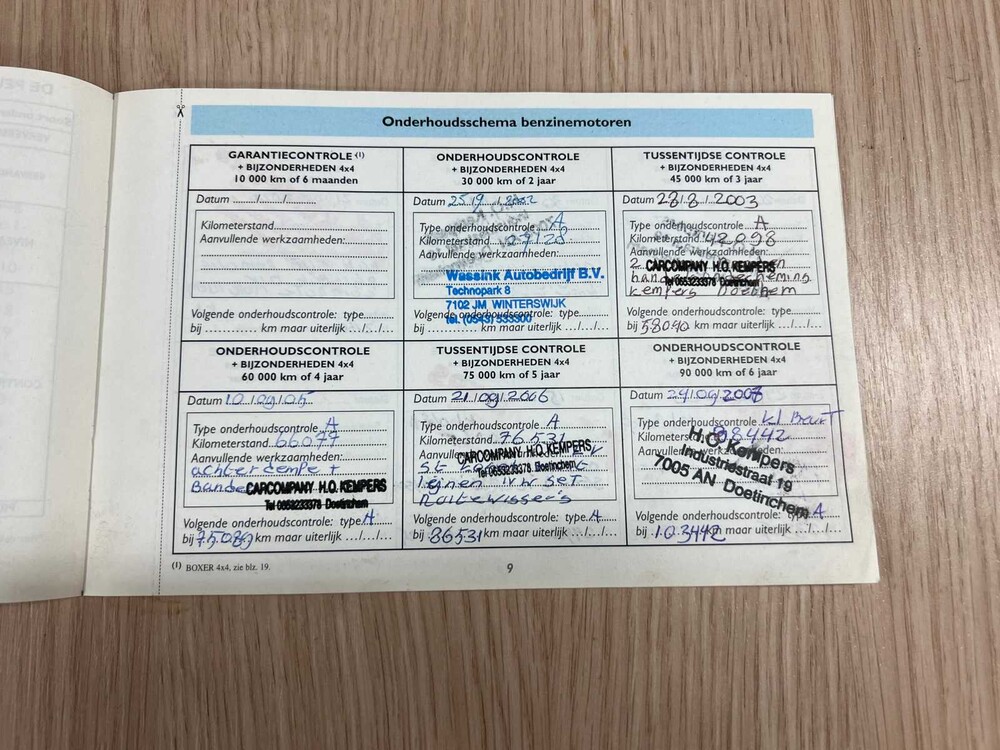 Onderhoudsschema benzinemotoren
GARANTIECONTROLE (1)
+ BIJZONDERHEDEN 4x4
10 000 km of 6 maanden
Datum ......./......./...............
Kilometerstand
Aanvullende werkzaamheden:
Volgende onderhoudscontrole: type
bij ................ km maar uiterlijk .../.../...
ONDERHOUDSCONTROLE
+ BIJZONDERHEDEN 4x4
30 000 km of 2 jaar
Datum
Type onderhoudscontrole A
Kilometerstand
Aanvullende werkzaamheden:
Wassink Autobedrijf B.V.
Technopark 8
7102 JM WINTERSWIJK
tel. (0543) 533300
Volgende onderhoudscontrole: type
bij ................ km maar uiterlijk .../.../...
TUSSENTIJDSE CONTROLE
+ BIJZONDERHEDEN 4x4
45 000 km of 3 jaar
Datum 28.8.2003
Type onderhoudscontrole A
Kilometerstand 42098
Aanvullende werkzaamheden:
CARCOMPANY H.O. KEMPERS
Tel 0653233378 Doetinchem
Kempers Doetinchem
Volgende onderhoudscontrole: type
bij 58090 km maar uiterlijk .../.../...
ONDERHOUDSCONTROLE
+ BIJZONDERHEDEN 4x4
60 000 km of 4 jaar
Datum 10.09.05
Type onderhoudscontrole A
Kilometerstand 66077
Aanvullende werkzaamheden:
achterdemper
CARCOMPANY H.O. KEMPERS
Tel 0653233378 Doetinchem
Volgende onderhoudscontrole: type A
bij 75089 km maar uiterlijk .../.../...
TUSSENTIJDSE CONTROLE
+ BIJZONDERHEDEN 4x4
75 000 km of 5 jaar
Datum 21.09.2006
Type onderhoudscontrole A
Kilometerstand 76531
CARCOMPANY H.O. KEMPERS
Tel 0653233378 Doetinchem
set
Volgende onderhoudscontrole: type A
bij 86531 km maar uiterlijk .../.../...
ONDERHOUDSCONTROLE
+ BIJZONDERHEDEN 4x4
90 000 km of 6 jaar
Datum 24.09.2007
Type onderhoudscontrole kl Beurt
Kilometerstand 98442
H.O. Kempers
Industriestraat 19
7005 AN Doetinchem
Volgende onderhoudscontrole: type A
bij 103442 km maar uiterlijk .../.../...
(1) BOXER 4x4, zie blz. 19.
9